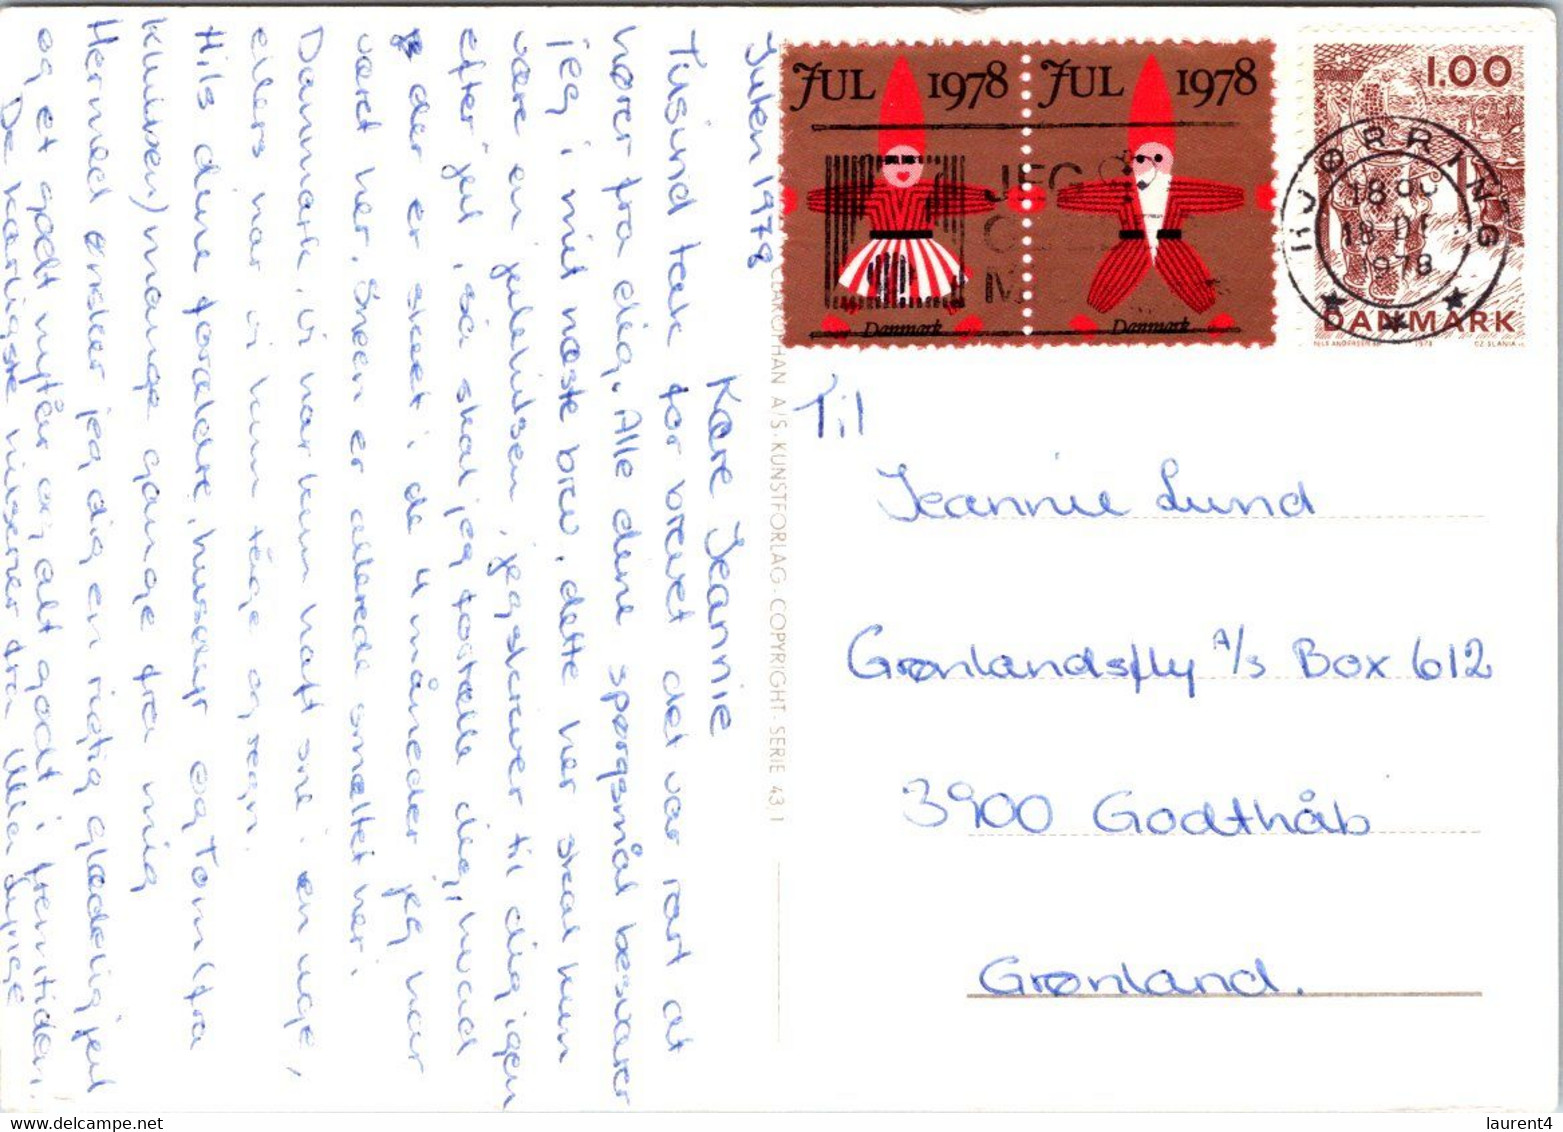 Julen 1978
Kære Jeannie
Tusind tak for brevet det var rart at
hører fra dig. Alle dine spørgsmål besvarer
jeg i mit næste brev, dette her skal kun
være en julehilsen, jeg skriver til dig igen
efter jul, så skal jeg fortælle dig, hvad
der er sket i de 4 måneder jeg har
været her. Sneen er allerede smeltet her i
Danmark, vi har kun haft sne i en uge,
ellers har vi kun tåge og regn.
Hils dine forældre, husdyr og Tom (fra
mange gange fra mig
Hermed ønsker jeg dig en rigtig glædelig jul
og et godt nytår og alt godt i fremtiden.
De kærligste hilsner fra Ulla
JUL 1978
Danmark
JUL 1978
Danmark
JEG
1.00
DANMARK
1978
CZ SLANIA
HJØRRING
1978
A/S · KUNSTFORLAG · COPYRIGHT · SERIE 43,1
Til
Jeannie Lund
Grønlandsfly A/s Box 612
3900 Godthåb
Grønland.
laurent4